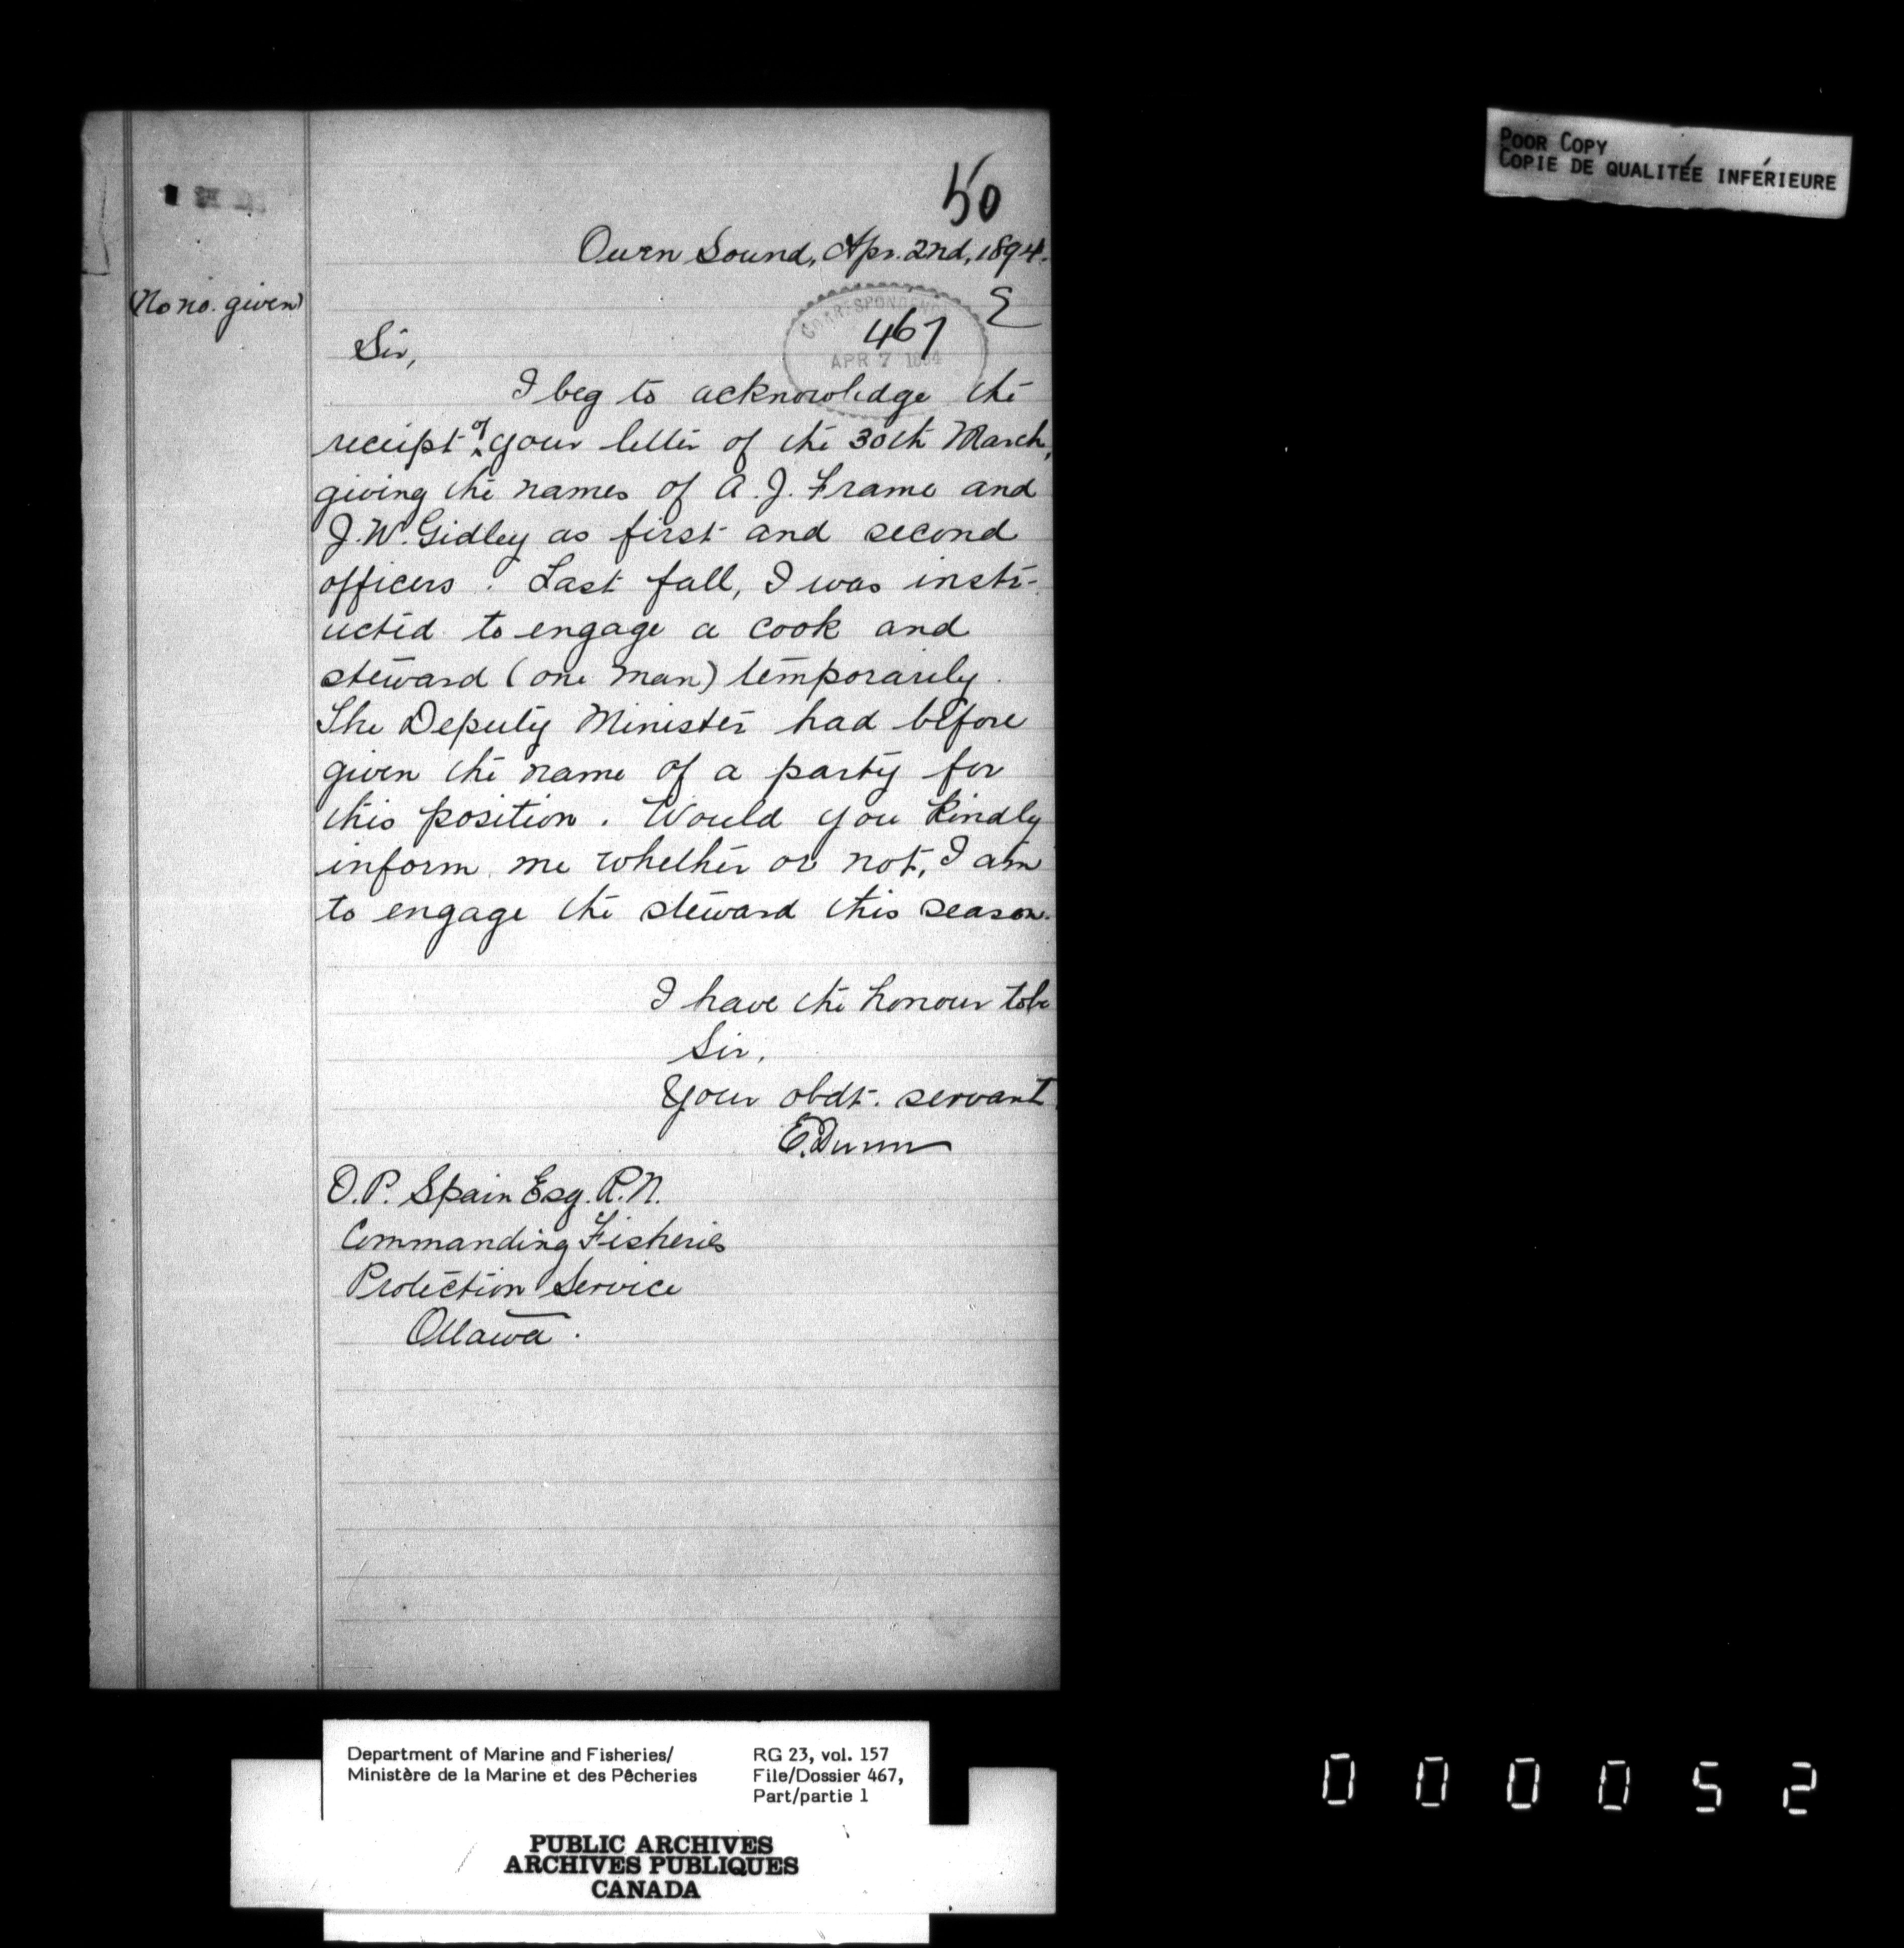 POOR COPY
COPIE DE QUALITÉE INFÉRIEURE
50
Owen Sound, Apr. 2nd, 1894.
(No no. given)
CORRESPONDENCE
467
APR 7 1894
Sir,
I beg to acknowledge the
receipt of your letter of the 30th March,
giving the names of A. J. Frame and
J. W. Gidley as first and second
officers. Last fall, I was instr-
ucted to engage a cook and
steward (one man) temporarily.
The Deputy Minister had before
given the name of a party for
this position. Would you kindly
inform me whether or not, I am
to engage the steward this season.
I have the honour to be
Sir,
Your obdt. servant
E. Dunn
O. P. Spain Esq. R.N.
Commanding Fisheries
Protection Service
Ottawa.
Department of Marine and Fisheries/
Ministère de la Marine et des Pêcheries
RG 23, vol. 157
File/Dossier 467,
Part/partie 1
PUBLIC ARCHIVES
ARCHIVES PUBLIQUES
CANADA
000052